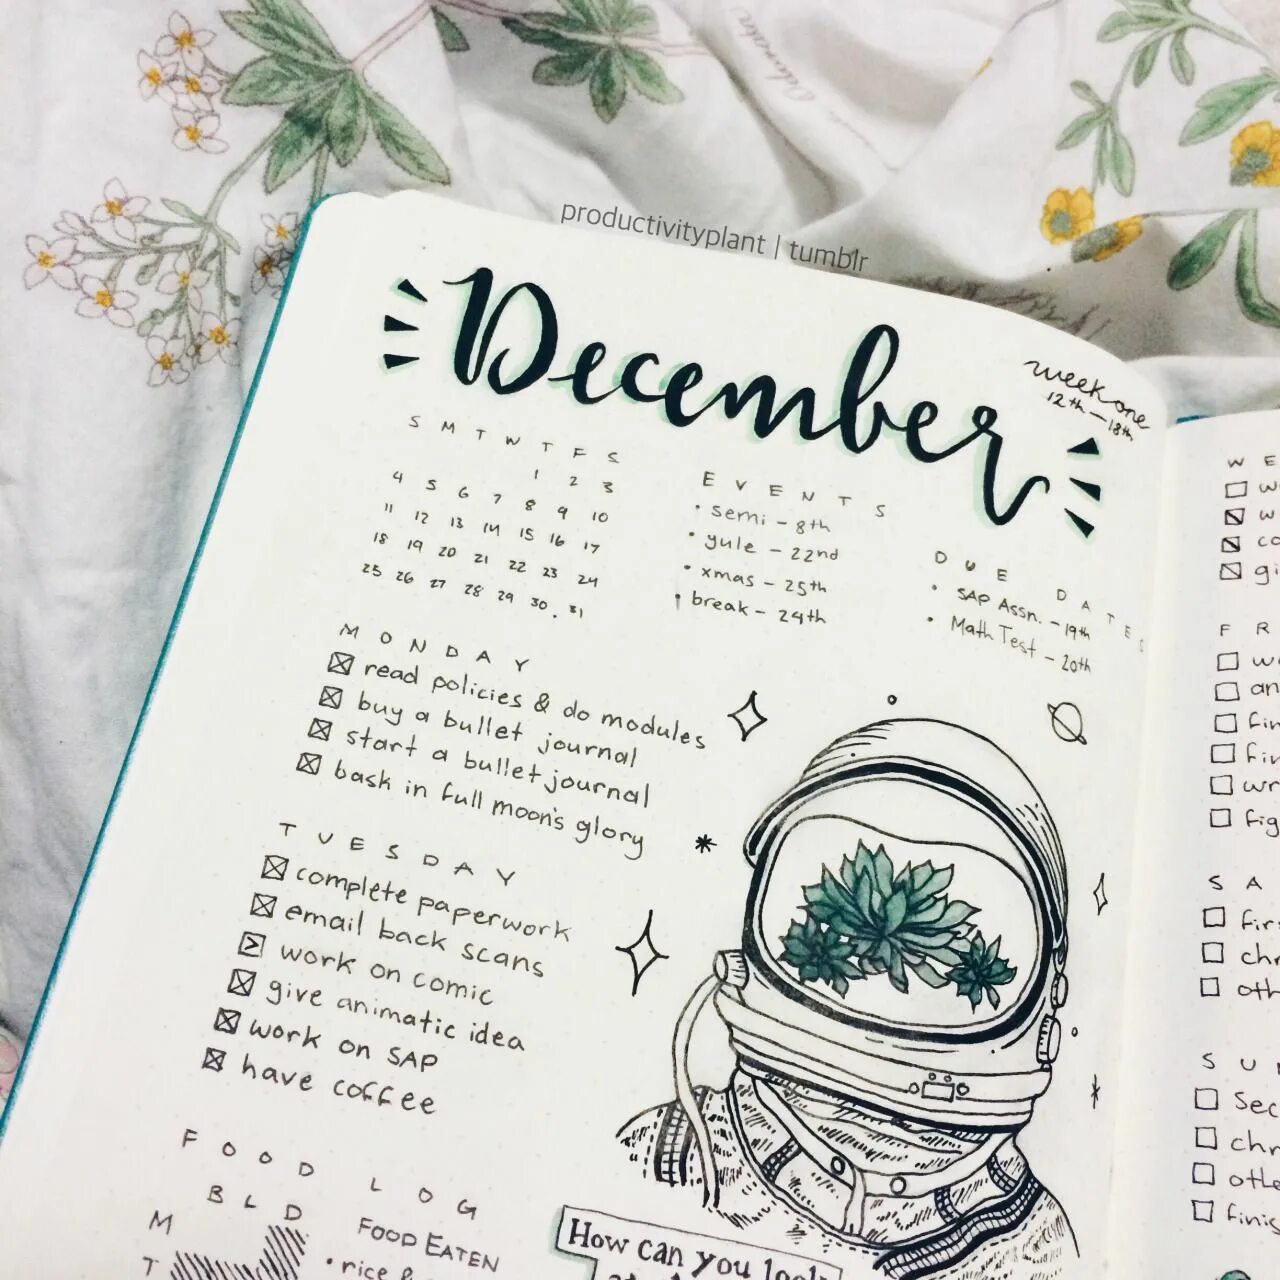 productivityplant | tumblr
December
week one
12th – 18th
S M T W T F S
1 2 3
4 5 6 7 8 9 10
11 12 13 14 15 16 17
18 19 20 21 22 23 24
25 26 27 28 29 30 31
EVENTS
• semi – 8th
• yule – 22nd
• xmas – 25th
break – 24th
DUE DATES
• SAP Assn. – 19th
• Math Test – 20th
MONDAY
read policies & do modules
buy a bullet journal
start a bullet journal
bask in full moon's glory
TUESDAY
complete paperwork
email back scans
work on comic
give animatic idea
work on SAP
have coffee
FOOD LOG
B L D
M
T
FOOD EATEN
• rice &
How can you look
W E
co
gi
F R
an
fin
fin
wr
fig
S A
firs
chr
oth
S U
Sec
chr
othe
finis